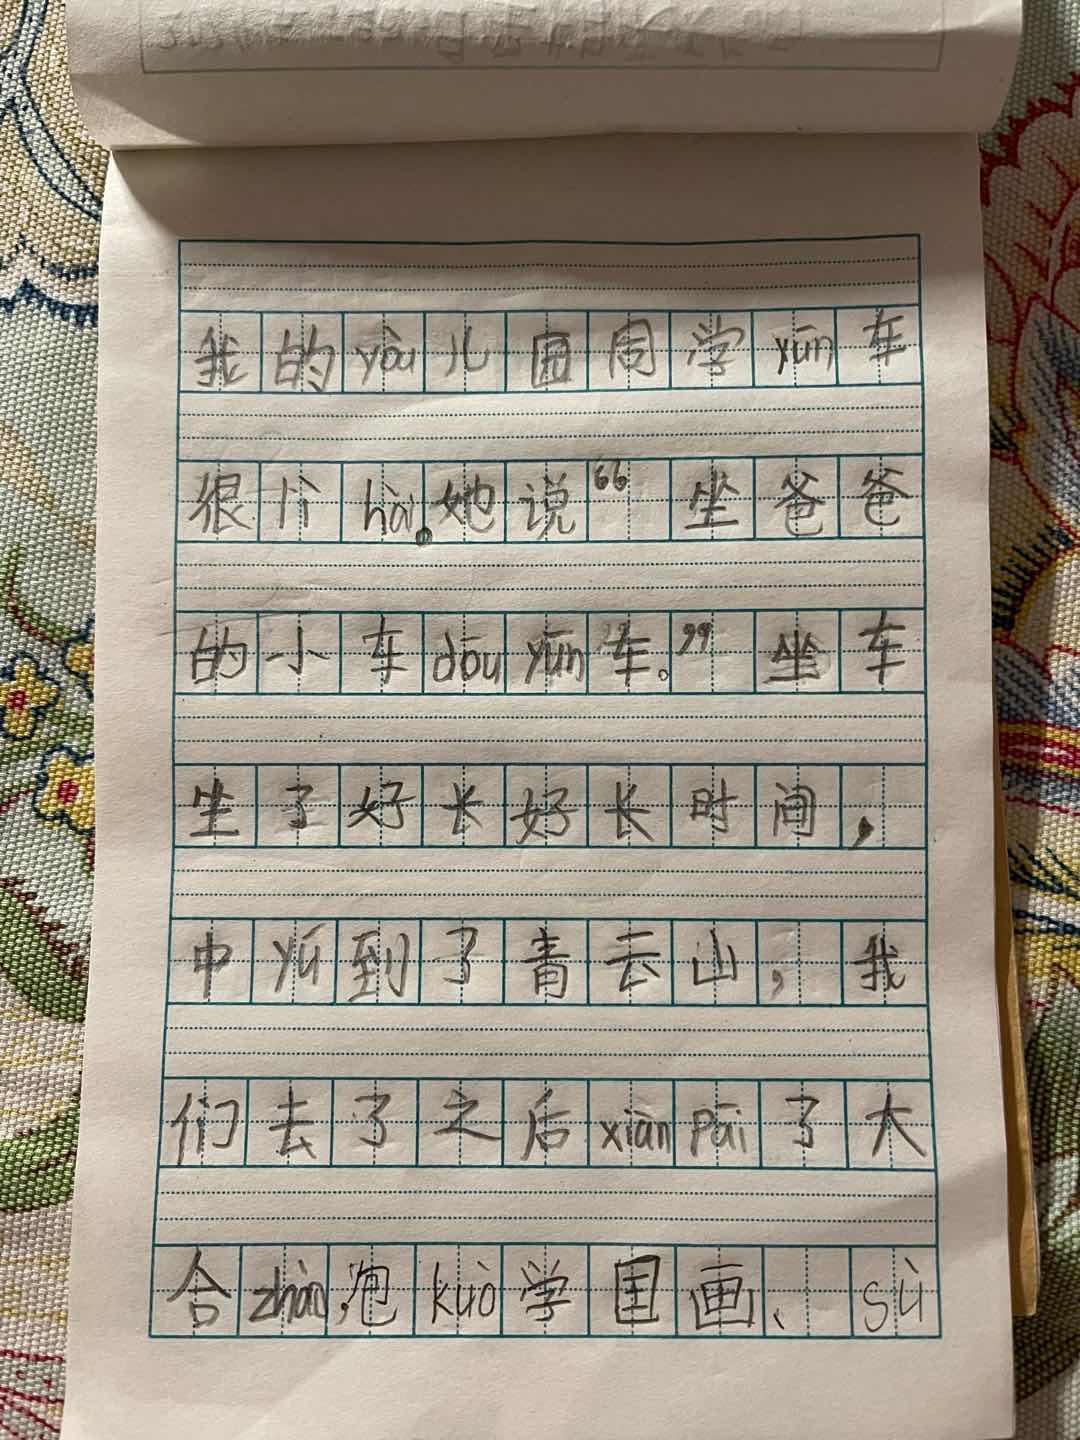 我的yòu儿园同学yūn车
很lì hài。她说“坐爸爸
的小车dōu yūn车。”坐车
坐了好长好长时间，
中yú到了青云山，我
们去了之后xiān pāi了大
合zhào，包kuò学国画、sù